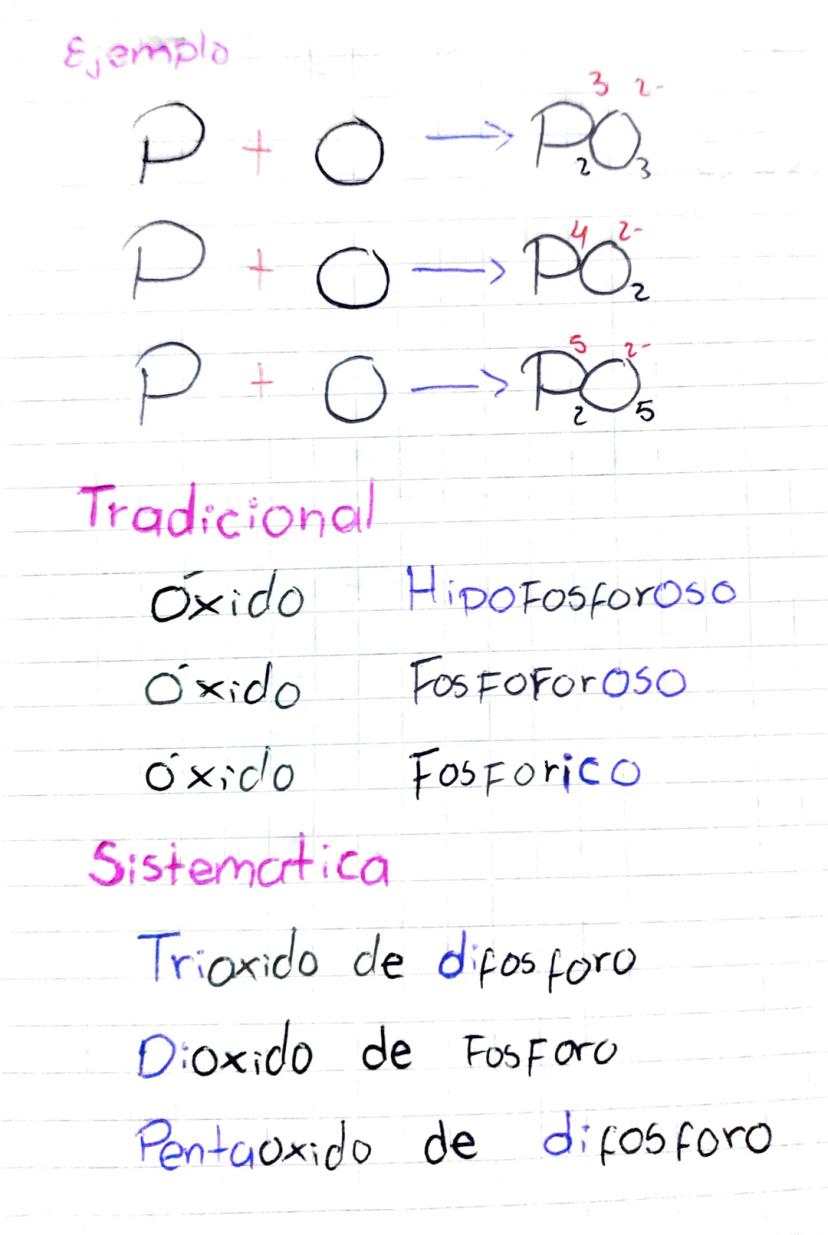 Ejemplo
P + O → P₂³O₃²⁻
P + O → P⁴O₂²⁻
P + O → P₂⁵O₅²⁻
Tradicional
Óxido Hipofosforoso
Óxido Fosfoforoso
óxido Fosforico
Sistematica
Trioxido de difosforo
Dioxido de Fosforo
Pentaoxido de difosforo